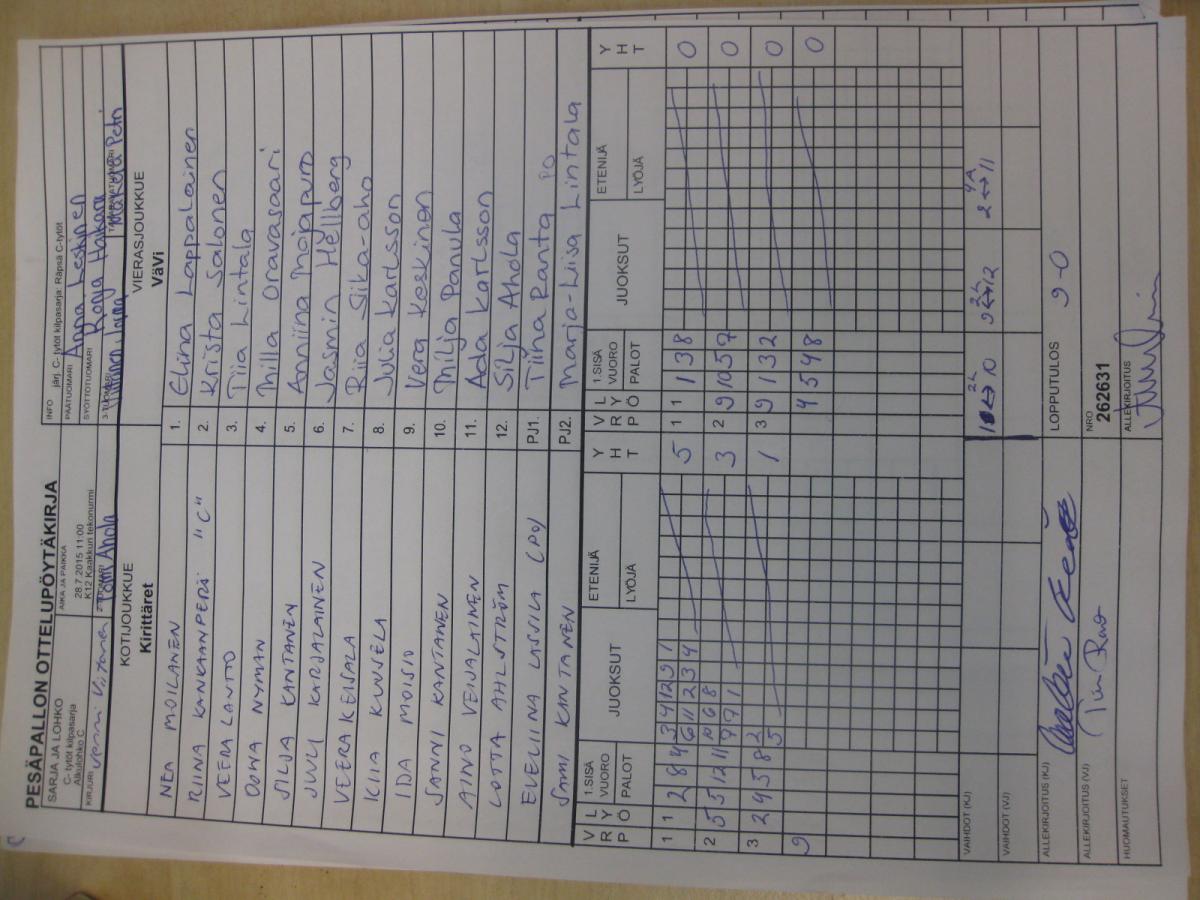 PESÄPALLON OTTELUPÖYTÄKIRJA
SARJA JA LOHKO
C- tytöt kilpasarja
Alkulohko C
AIKA JA PAIKKA
28.7.2015 11:00
K12 Kaakkuri tekonurmi
INFO järj. C- tytöt kilpasarja: Räpsä C-tytöt
PÄÄTUOMARI Anna Leskinen
SYÖTTÖTUOMARI Ronja Haikara
KIRJURI
2-TUOMARI Tomi Ahola
3-TUOMARI
TAKARAJATUOMARI Petri
KOTIJOUKKUE
Kirittäret
VIERASJOUKKUE
ViVi
NEA MOILANEN 1. Elina Lappalainen
RIINA KANKAANPERÄ "C" 2. Krista Salonen
VEERA LANTTO 3. Tiia Lintala
OONA NYMAN 4. Milla Oravasaari
SILJA KANTANEN 5. Anniina Mojapuro
JUULI KARJALAINEN 6. Jasmin Hellberg
VEERA KEISALA 7. Riia Sika-aho
KIIA KUNSELA 8. Julia Karlsson
IDA MOISIO 9. Vera Keskinen
SANNI KANTANEN 10. Milja Panula
AINO VEIJALAINEN 11. Ada Karlsson
LOTTA AHLSTRÖM 12. Silja Ahola
EVELIINA LASSILA (PO) PJ1. Tiina Ranta PO
SAMI KANTANEN PJ2. Marja-Liisa Lintala
V R P L Y Ö 1.SISÄ VUORO PALOT JUOKSUT ETENIJÄ LYÖJÄ Y H T V R P L Y Ö 1.SISÄ VUORO PALOT JUOKSUT ETENIJÄ LYÖJÄ Y H T
1 1 2 8 4 3 4 12 9 1 5 1 1 1 3 8 0
6 11 2 3 4
2 5 5 12 11 10 6 8 3 2 9 10 5 7 0
7 7 1
3 2 4 5 8 2 1 3 9 1 3 2 0
5
9 4 5 4 8 0
VAIHDOT (KJ) 2L 10 9 2L 12 2 4A 11
VAIHDOT (VJ)
ALLEKIRJOITUS (KJ) LOPPUTULOS 9-0
ALLEKIRJOITUS (VJ) NRO 262631
HUOMAUTUKSET ALLEKIRJOITUS